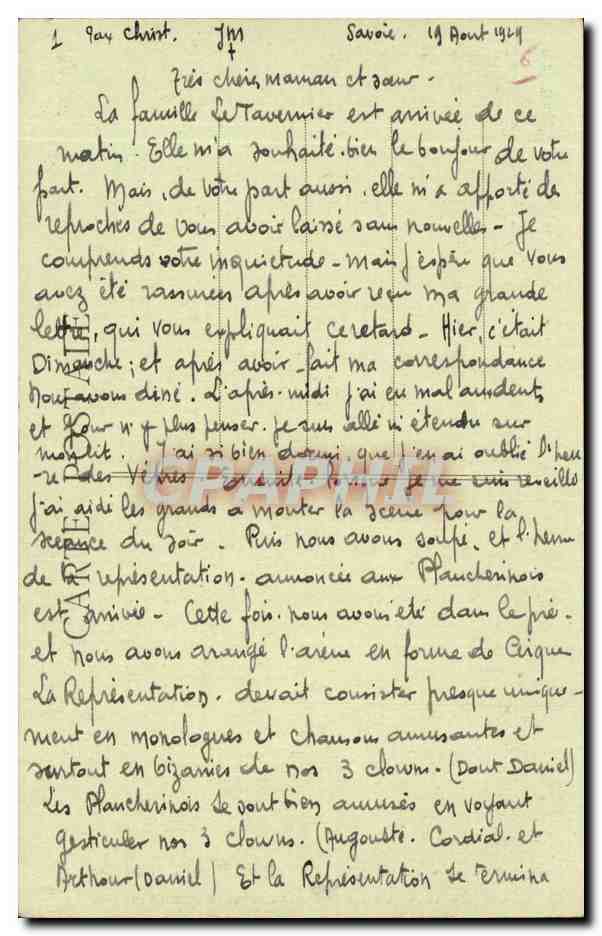 1 Pax Christ. JM Savoie. 19 Aout 1929
6
Très chères maman et sœur.
La famille Le Tavernier est arrivée de ce
matin. Elle m'a souhaité bien le bonjour de votre
part. Mais, de votre part aussi, elle m'a apporté des
reproches de vous avoir laissé sans nouvelles - Je
comprends votre inquietude - mais j'espère que vous
avez été rassurées après avoir reçu ma grande
lettre, qui vous expliquait ce retard - Hier, c'était
Dimanche; et après avoir fait ma correspondance
nous avons diné. L'après-midi j'ai eu mal aux dents
et pour n'y plus penser je suis allé m'étendre sur
mon lit. J'ai si bien dormi, que j'en ai oublié l'heu
-re des Vêpres. Ensuite lorsque je me suis reveillé
j'ai aidé les grands a monter la scene pour la
séance du soir. Puis nous avons soupé, et l'heure
de la représentation annoncée aux Plancherinois
est arrivée - Cette fois nous avons été dans le pré.
et nous avons arangé l'arène en forme de Cirque
La Représentation. devait consister presque unique-
ment en monologues et chansons amusantes et
surtout en bizarries de nos 3 clowns. (Dont Daniel)
Les Plancherinois se sont bien amusés en voyant
gesticuler nos 3 clowns. (Augouste. Cordial. et
Arthour (Daniel) Et la Représentation se termina
CARTE POSTALE
CPAPHIL